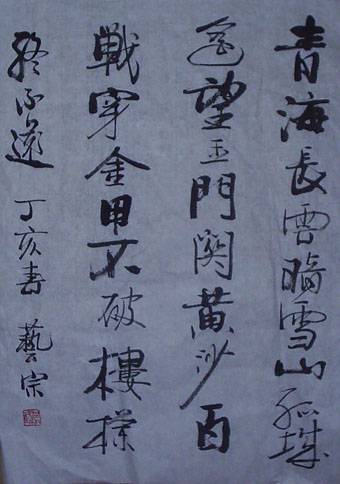 青海長雲暗雪山孤城
遥望玉門関黄沙百
戦穿金甲不破樓
終不還 丁亥春 藝宗